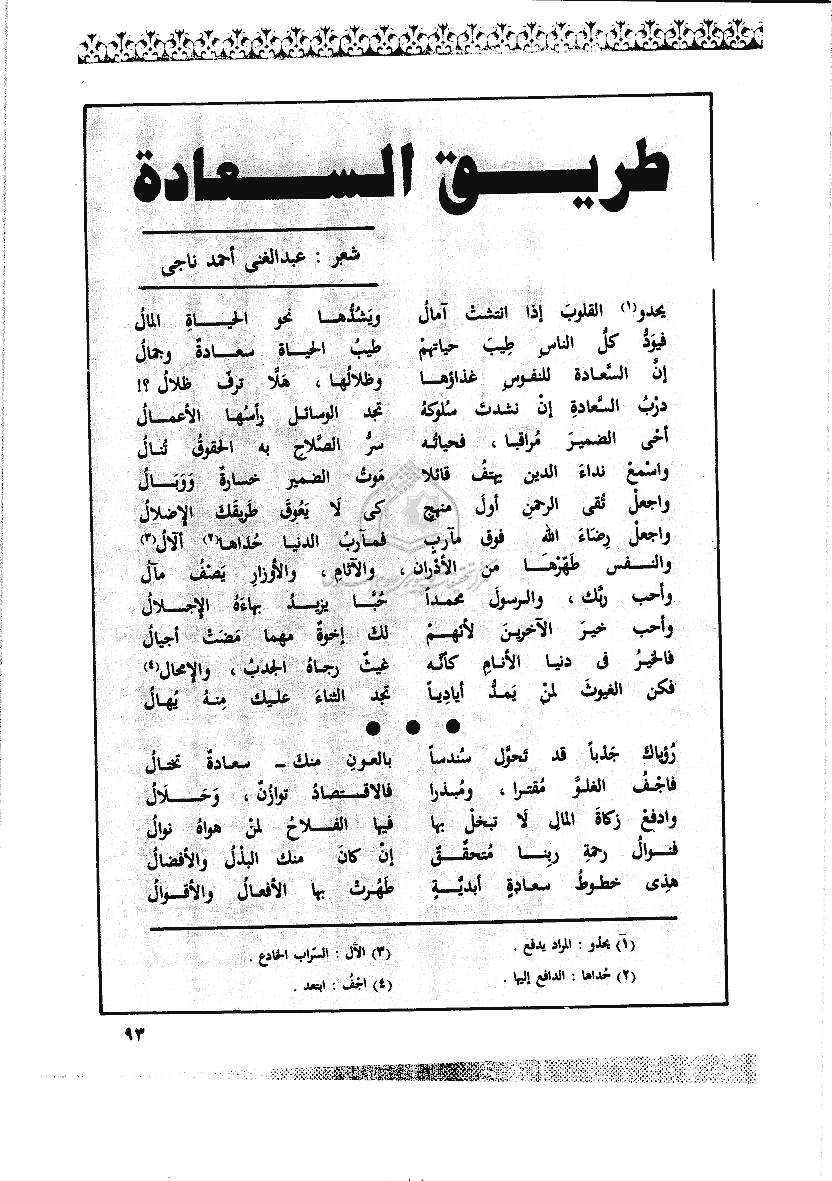 طريق السعادة
شعر : عبدالغنى أحمد ناجى
يحدو(١) القلوبَ إذا انتشتْ آمالُ ويَشُدُّها نحو الحياةِ المالُ
فيوَدُّ كلُّ الناسِ طِيبَ حياتهمْ طيبُ الحياة سعادةٌ وجمالُ
إنَّ السَّعادة للنفوسِ غذاؤها وظلالُها ، هَلَّا ترفّ ظلالُ ؟!
دربُ السَّعادةِ إنْ نشدتَ سُلوكهُ تجد الوسائل رأسُها الأعمالُ
أحْى الضميرَ مُراقبا ، فحياتُه سرُّ الصَّلاحِ به الحقوقُ تُنالُ
واسْمعْ نداءَ الدين يهتفُ قائلا مَوتُ الضمير خسارةٌ وَوَبَالُ
واجعلْ تُقى الرحمنِ أولَ منهجٍ كى لَا يَعُوقَ طَرِيقَكَ الإضلالُ
واجعلْ رِضَاءَ الله فوق مآربٍ فمآربُ الدنيا حُداها(٢) آلالُ(٣)
والنفس طَهّرْهَا من الأدْران ، والآثامِ ، والأوزارِ يَصْفُ مآلُ
وأحب ربَّك ، والرسولَ محمداً حُبًّا يزيدُ بهاءَهُ الإجلالُ
وأحب خيرَ الآخرينَ لأنهمْ لك إخوةٌ مهما مَضَتْ أجيالُ
فالخيرُ فى دنيا الأنامِ كأنَّه غيثٌ رجاهُ الجدبُ ، والإمحال(٤)
فكن الغيوثَ لمنْ يَمدُّ أيادِياً تجد الثناءَ عليك مِنهُ يُهالُ
● ● ●
رُؤياكَ جَذباً قد تَحوَّل سُندساً بالعونِ منك – سعادةٌ تختالُ
فاجْفُ الغلوَّ مُقترا ، ومُبذرا فالاقتصادُ توازُنٌ ، وَحَلَالُ
وادفعْ زكاةَ المالِ لَا تبخلْ بها فيها الفلاحُ لمنْ هواهُ نوالُ
فنوالُ رحمةِ ربِنا مُتحقِّقٌ إنْ كانَ منك البذْلُ والأفضالُ
هذِى خطوطُ سعادةٍ أبديَّةٍ طَهُرتْ بها الأفعالُ والأقوالُ
(١) يحذو : المراد يدفع . (٣) الآل : السّراب الخادع .
(٢) حُداها : الدافع إليها . (٤) اجْفُ : ابتعد .
٩٣